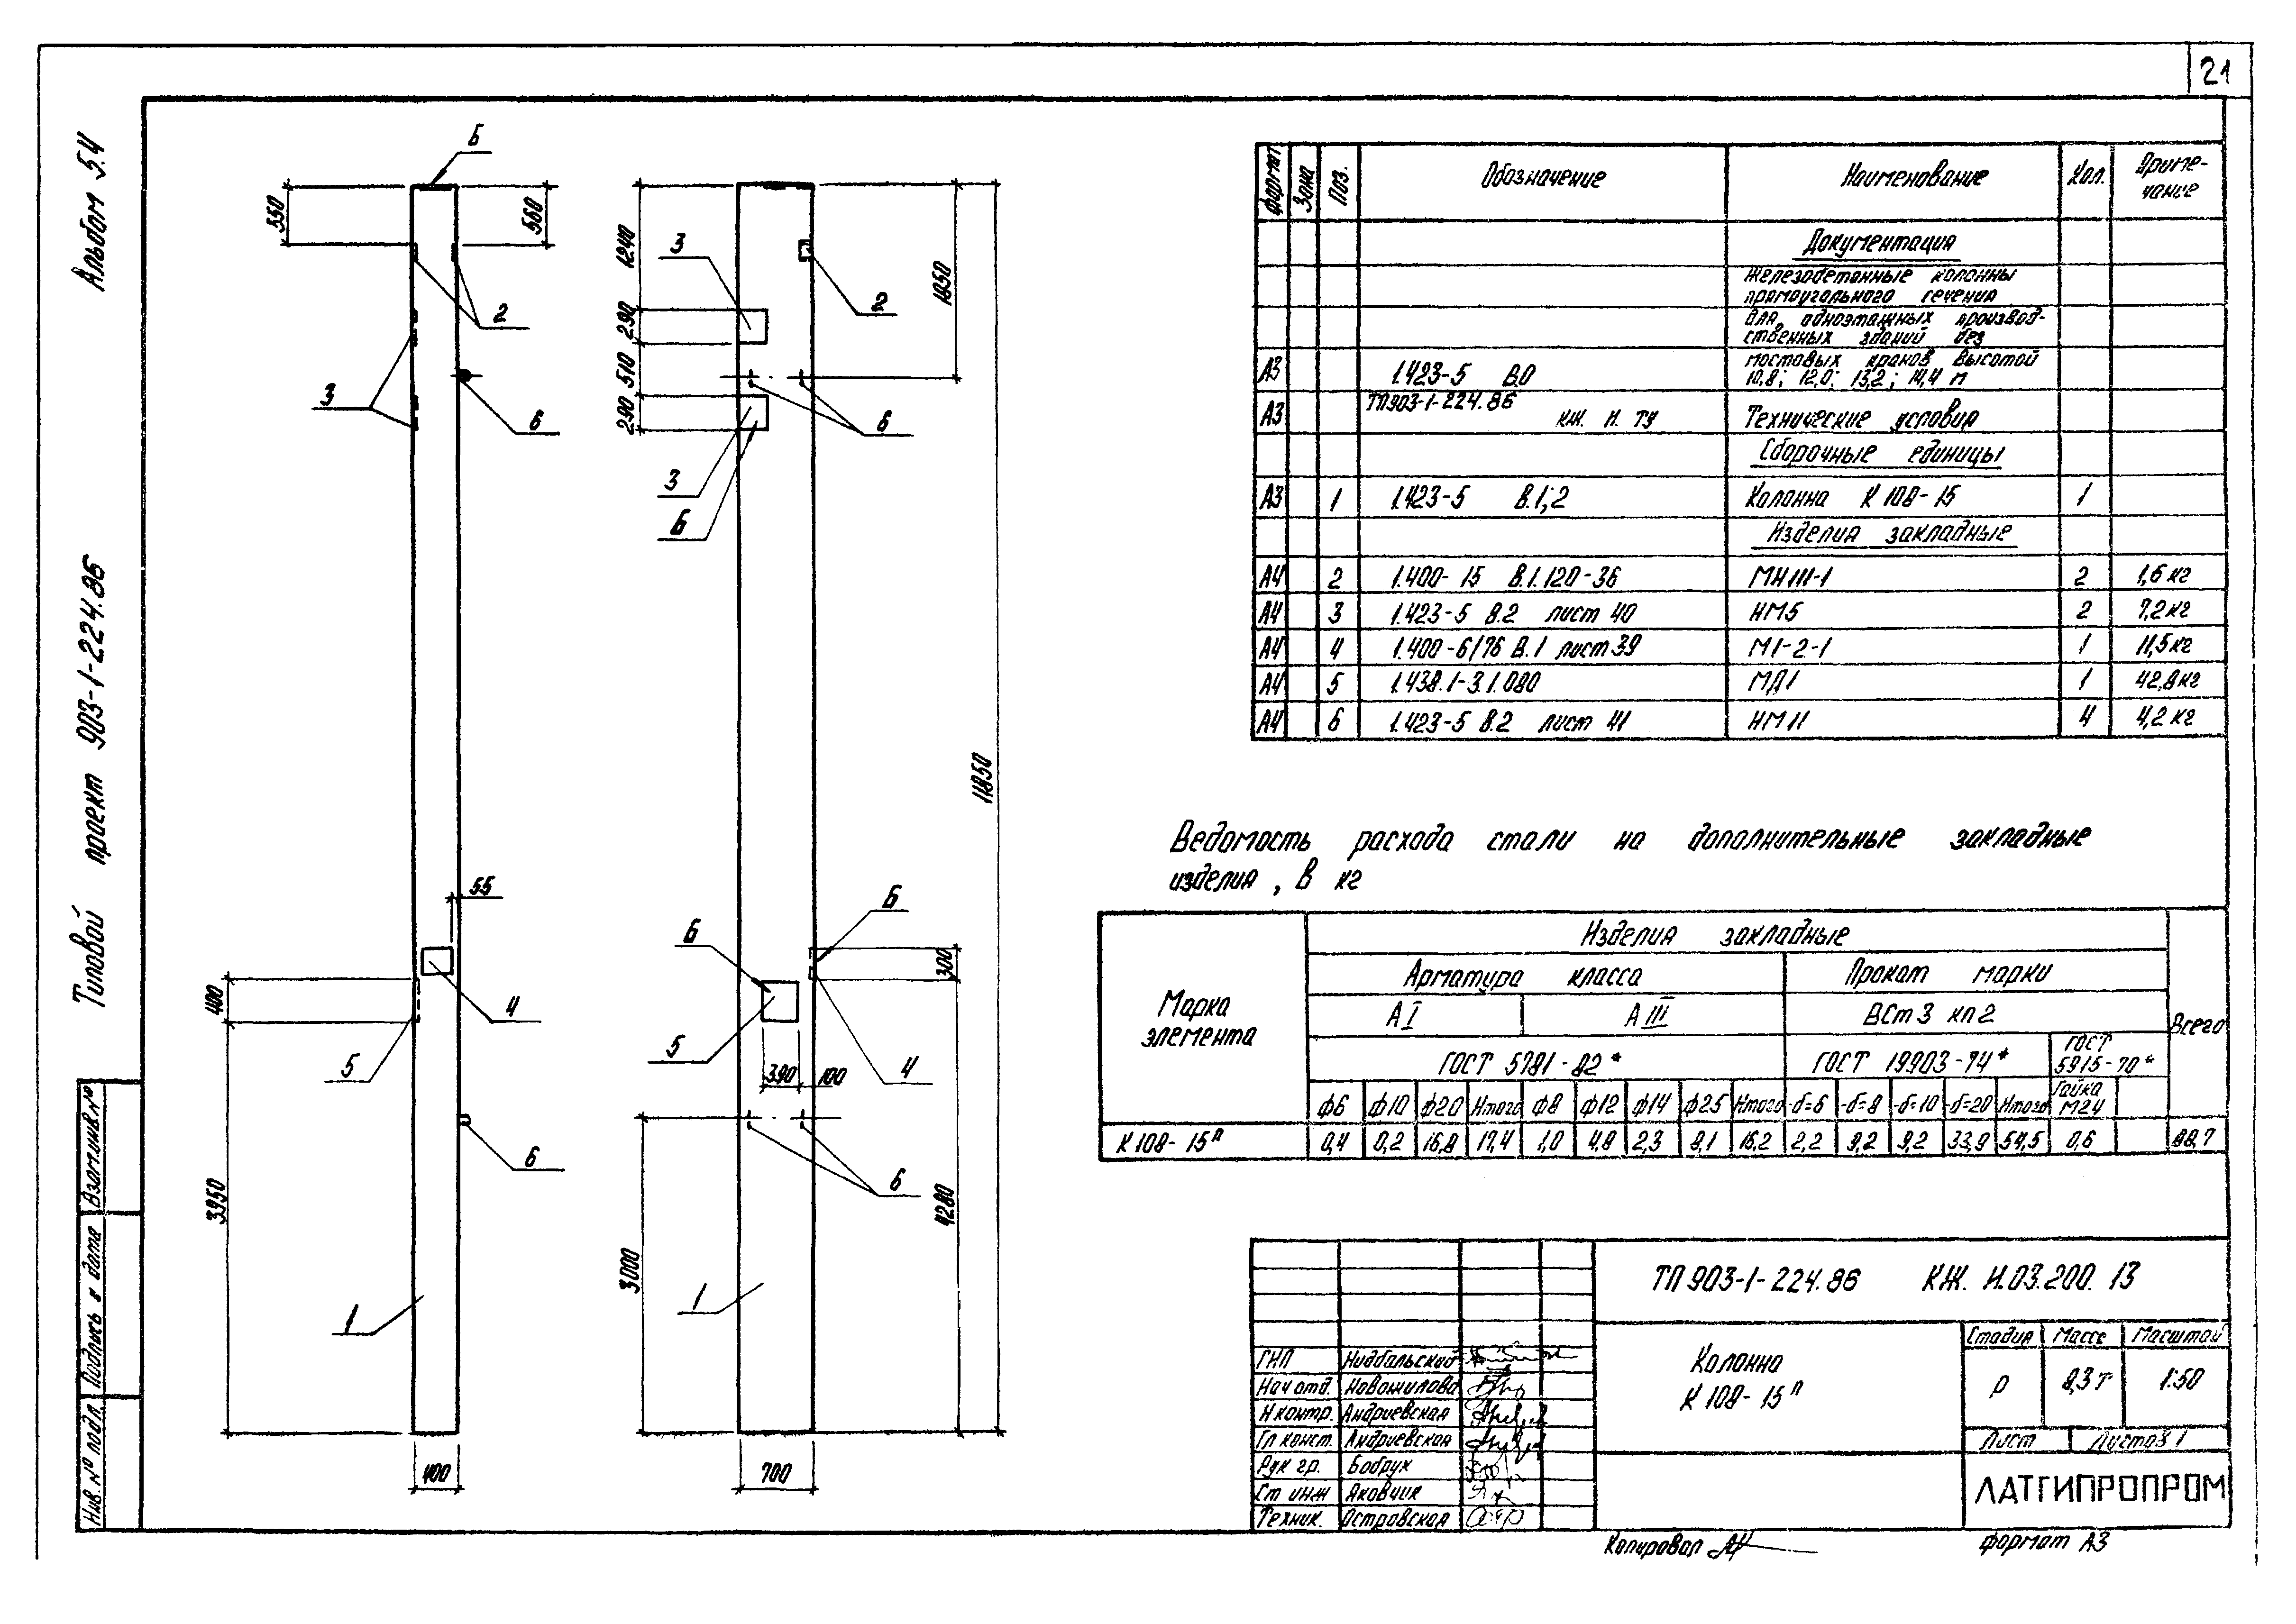 21
Альбом 5.4
Типовой проект 903-1-224.86
Взам.инв.№
Подпись и дата
Инв.№ подл.
Б
550
560
2
3
6
55
4
400
5
6
3950
1
400
1240
3
290
510
290
2
1850
6
3
Б
11850
Б
Б
300
5
390
100
4
6
3000
4280
1
700
Формат Зона Поз. Обозначение Наименование Кол. Приме-
чание
Документация
Железобетонные колонны
прямоугольного сечения
для одноэтажных производ-
ственных зданий без
мостовых кранов высотой
А3 1.423-5 В.0 10,8; 12,0; 13,2; 14,4 м
А3 ТП903-1-224.86 КЖ. И. ТУ Технические условия
Сборочные единицы
А3 1 1.423-5 В.1;2 Колонна К 108-15 1
Изделия закладные
А4 2 1.400-15 В.1.120-36 МН111-1 2 1,6 кг
А4 3 1.423-5 В.2 лист 40 НМ5 2 7,2 кг
А4 4 1.400-6/76 В.1 лист 39 М1-2-1 1 11,5 кг
А4 5 1.438.1-3.1.080 МД1 1 42,8 кг
А4 6 1.423-5 В.2 лист 41 НМ11 4 4,2 кг
Ведомость расхода стали на дополнительные закладные
изделия, в кг
Марка
элемента
Изделия закладные
Всего
Арматура класса Прокат марки
АI АIII ВСт3 кп2
ГОСТ 5781-82* ГОСТ 19903-74* ГОСТ
5915-70*
ф6 ф10 ф20 Итого ф8 ф12 ф14 ф25 Итого -δ=6 -δ=8 -δ=10 -δ=20 Итого Гайка
М24
К 108-15п 0,4 0,2 16,8 17,4 1,0 4,8 2,3 8,1 16,2 2,2 9,2 9,2 33,9 54,5 0,6 88,7
ТП 903-1-224.86 КЖ. И.03.200. 13
Колонна
К 108-15п
Стадия Масса Масштаб
Р 8,3 т 1:50
Лист Листов 1
ЛАТГИПРОПРОМ
ГИП Нидбальский
Нач отд. Новожилова
Н контр. Андриевская
Гл конст. Андриевская
Рук гр. Бобрук
Ст инж Яковчик
Техник. Островская
Копировал
формат А3